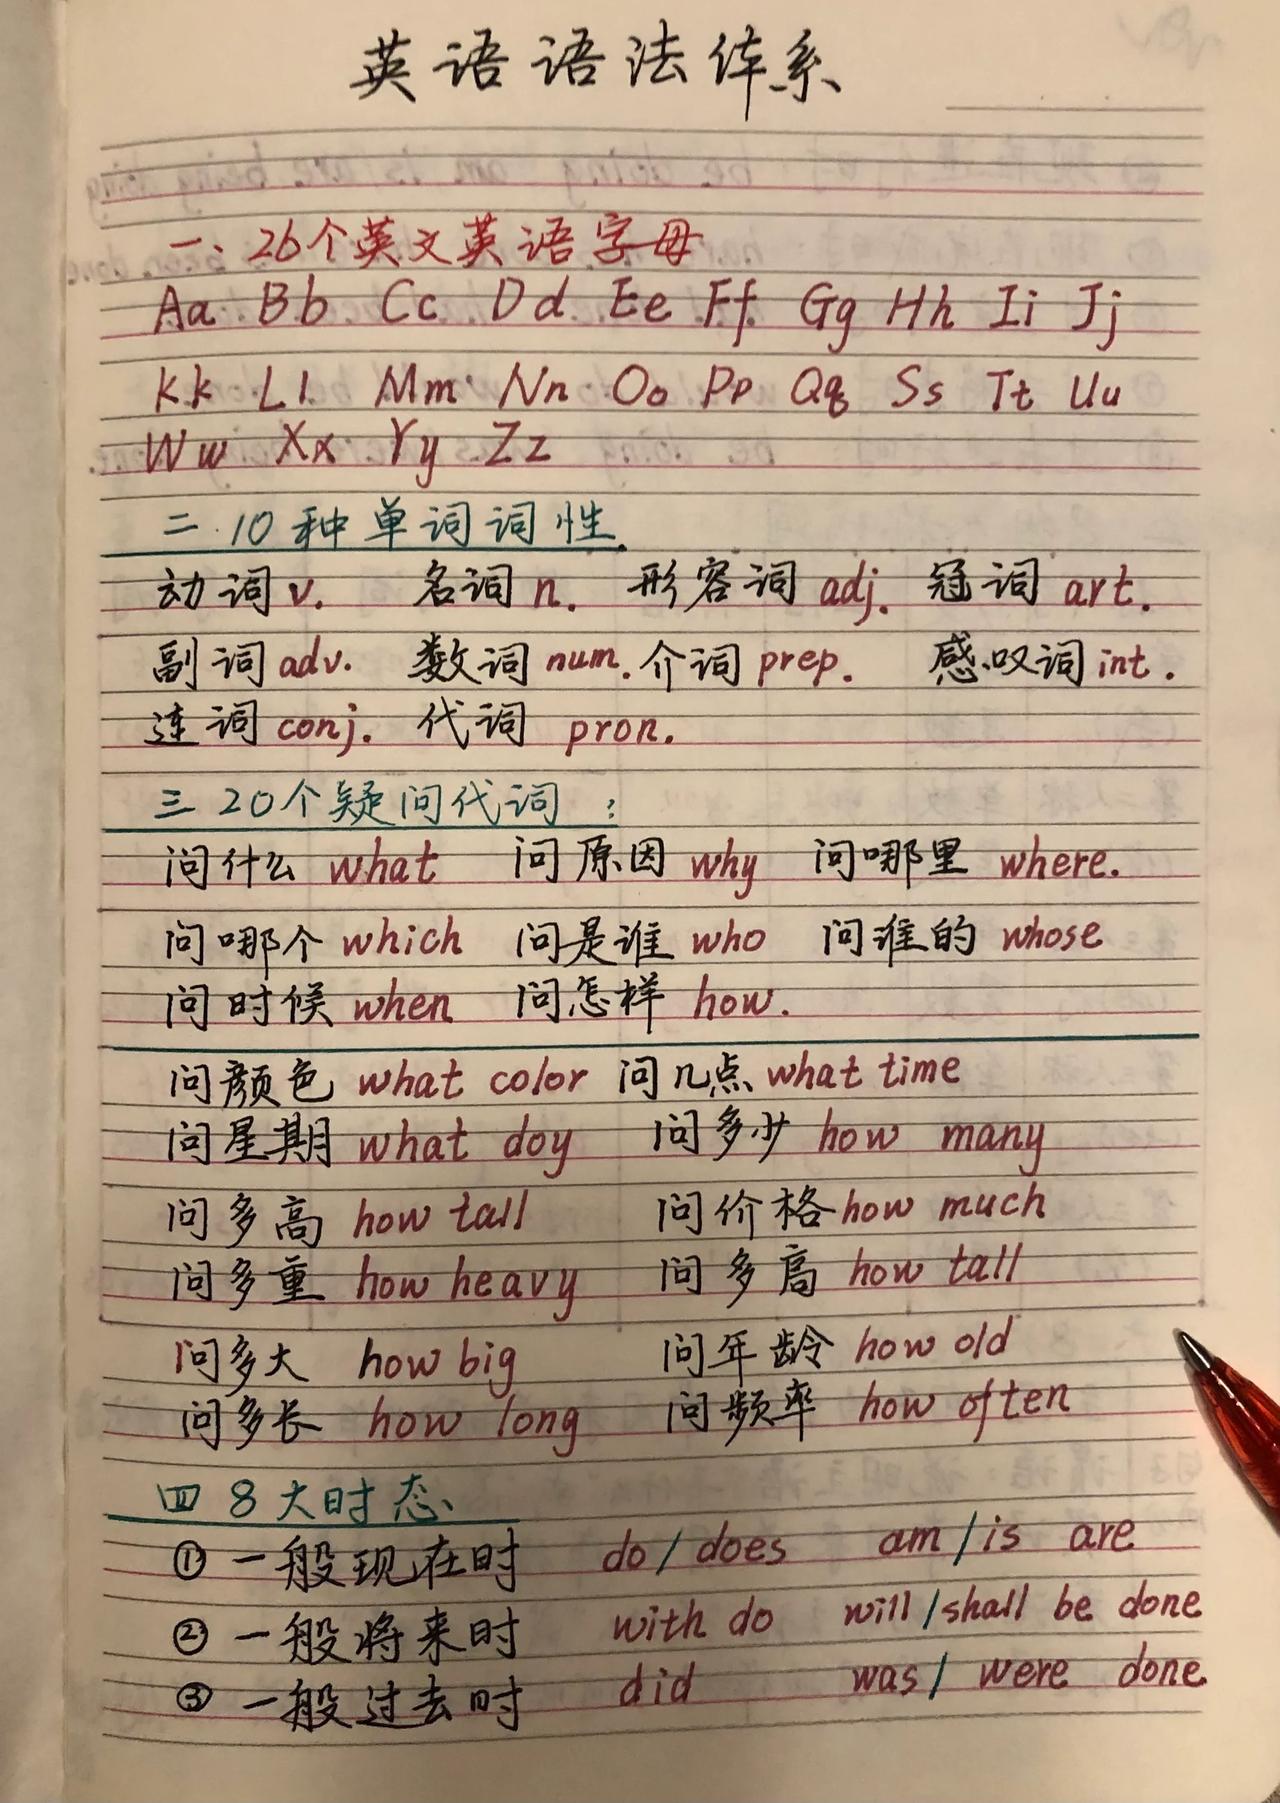 英语语法体系
一、26个英文英语字母
Aa Bb Cc Dd Ee Ff Gg Hh Ii Jj
Kk Ll Mm Nn Oo Pp Qq Ss Tt Uu
Ww Xx Yy Zz
二.10种单词词性.
动词 v. 名词 n. 形容词 adj. 冠词 art.
副词 adv. 数词 num. 介词 prep. 感叹词 int.
连词 conj. 代词 pron.
三 20个疑问代词：
问什么 what 问原因 why 问哪里 where.
问哪个 which 问是谁 who 问谁的 whose
问时候 when 问怎样 how.
问颜色 what color 问几点 what time
问星期 what doy 问多少 how many
问多高 how tall 问价格 how much
问多重 how heavy 问多高 how tall
问多大 how big 问年龄 how old
问多长 how long 问频率 how often
四 8大时态、
① 一般现在时 do/does am/is are
② 一般将来时 with do will/shall be done
③ 一般过去时 did was/were done